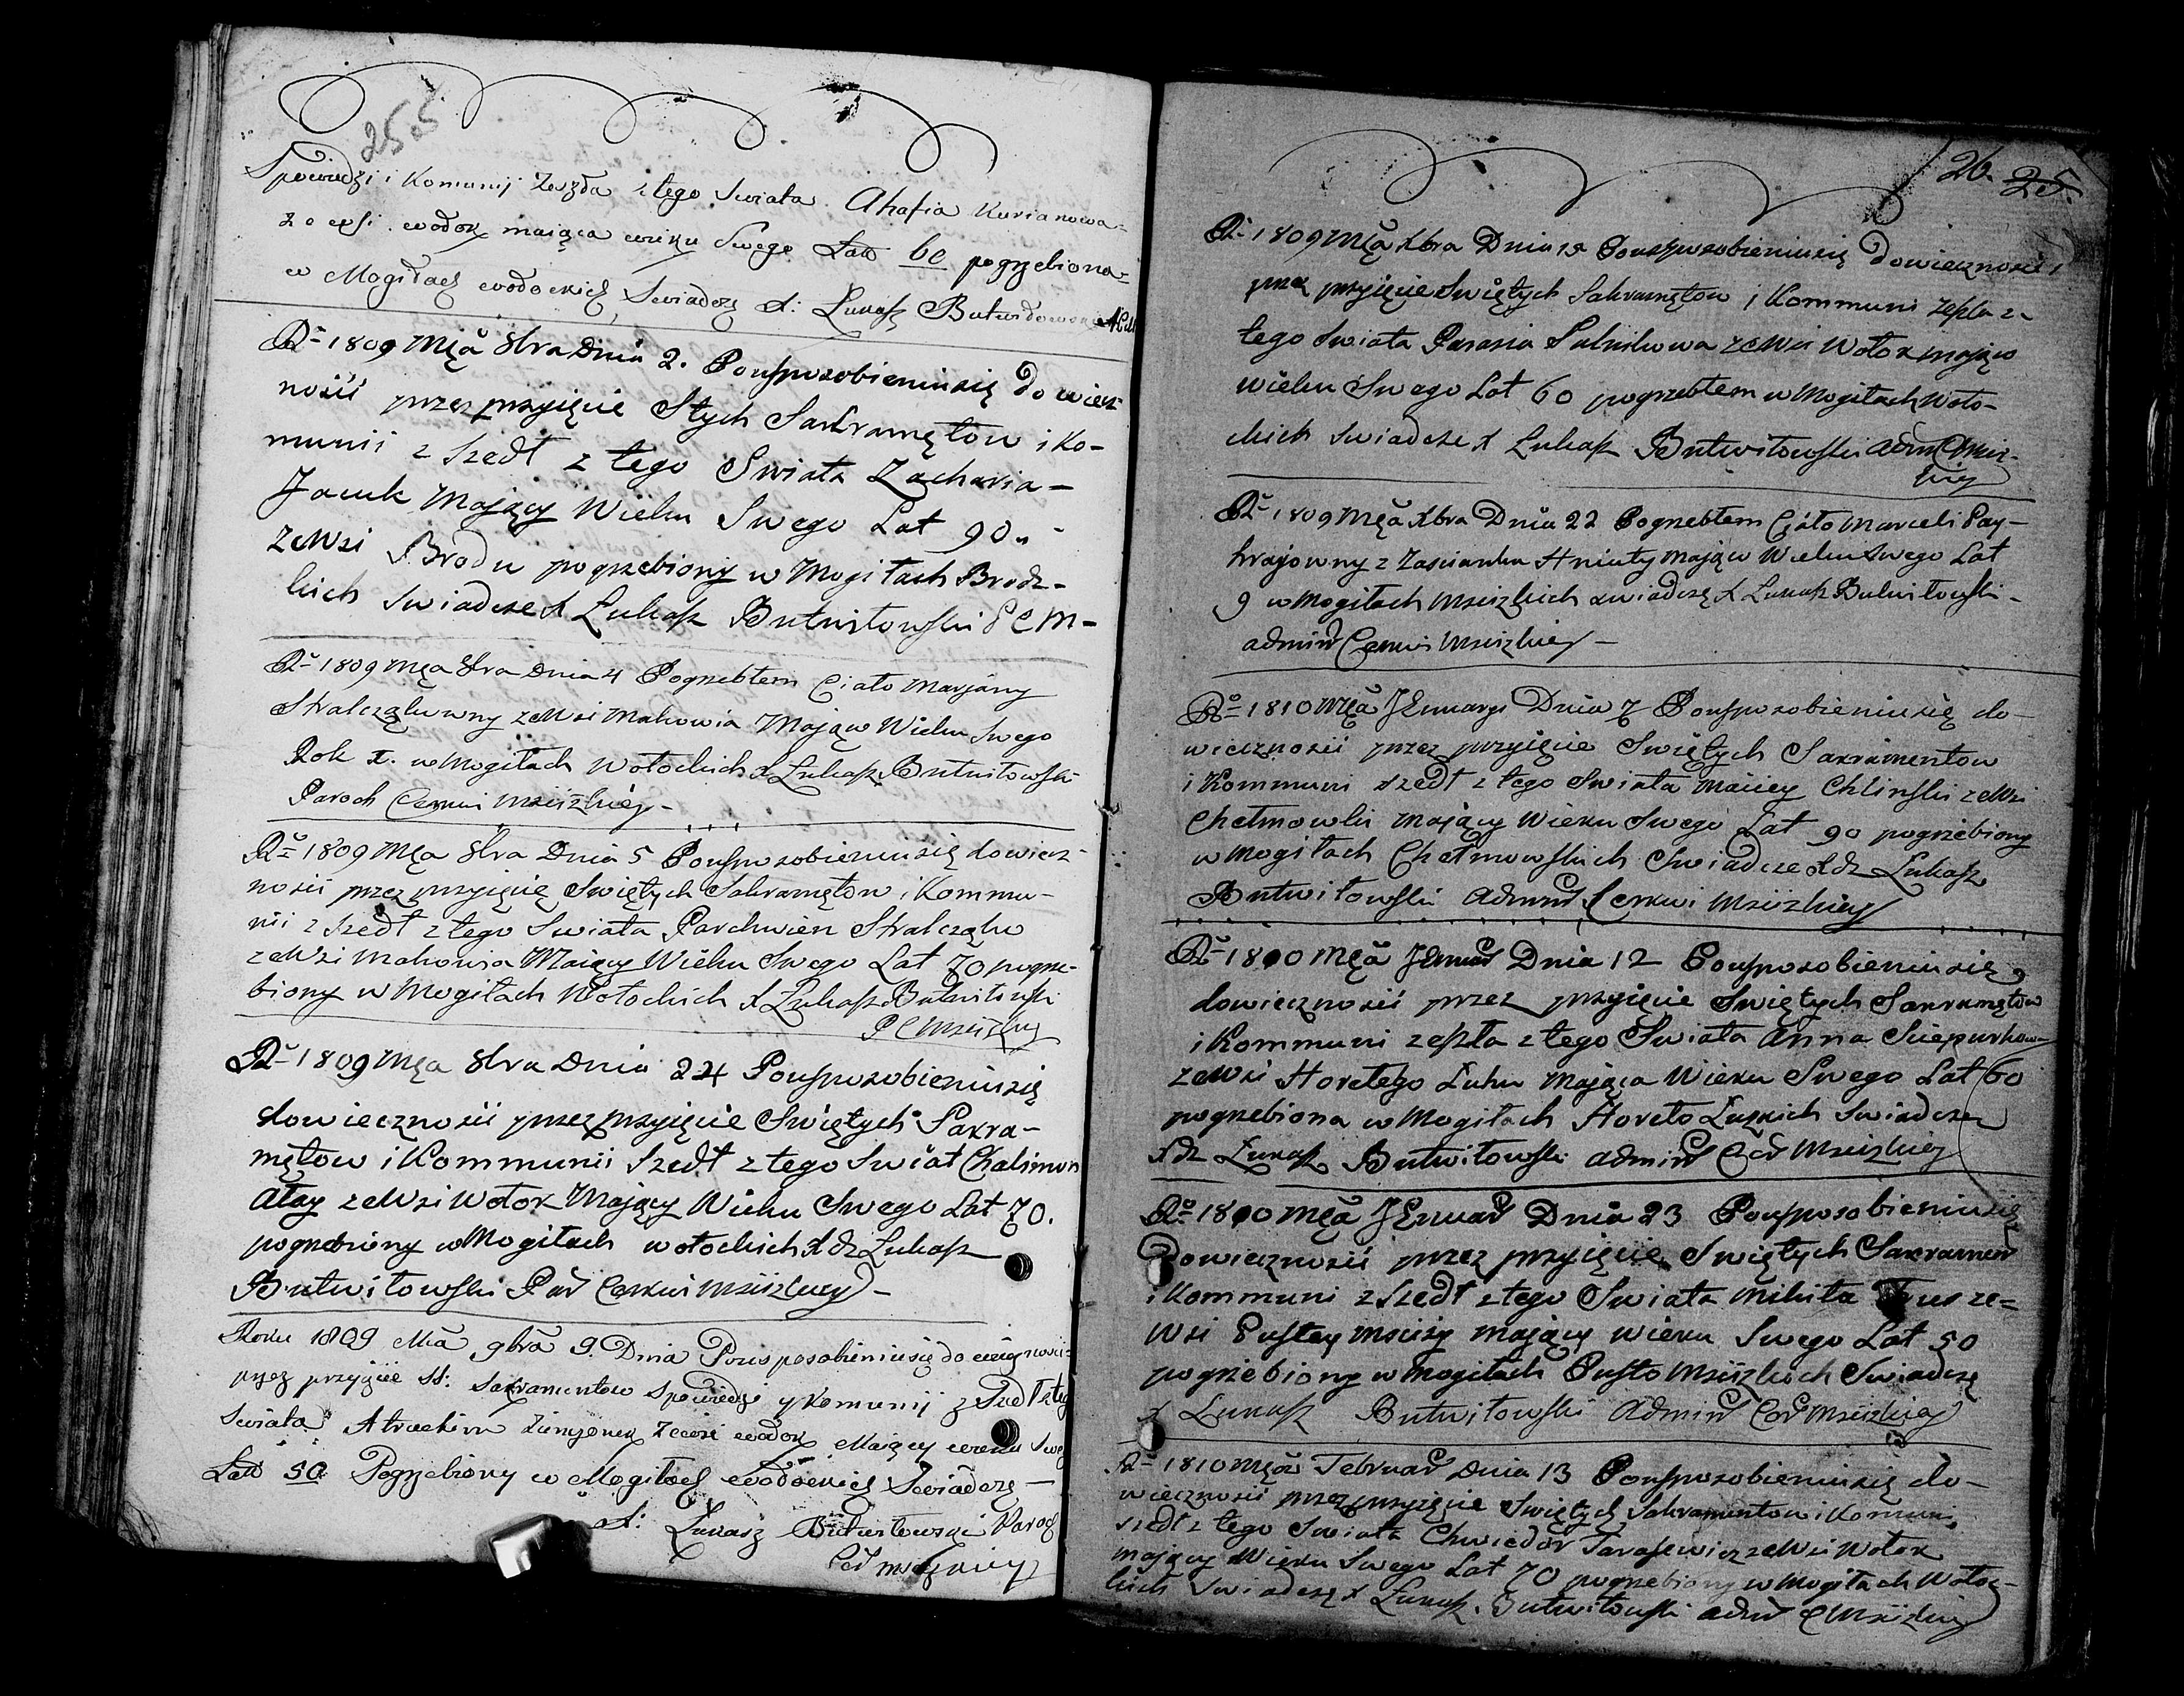 25.5
Spowiedzi i Komunij Zeszła z tego Swiata Ahafia Kurianowa
ze wsi wołok maiąca wieku Swego Lat 60 pogrzebiona
w Mogiłach wołockich Swiadczę X: Łukasz Butwiłowski
Rº 1809 Mca 8bra Dnia 2. Pousposobieniu się do wiecz
ności przez przyięcie Stych Sakramętow i Ko-
munii z szedł z tego Swiata Zacharia-
Jacuk Mający Wieku Swego Lat 90.
ze Wsi Brodu pogrzebiony w Mogiłach Brodz-
kich Swiadcze X Lukasz Butwiłowski P C M-
Rº 1809 Mca 8bra Dnia 4 Pogrzebłem Ciało Marjany
Stralcząkuwny ze Wsi Makowia Mająw Wieku Swego
Rok 1. w Mogiłach Wołockich X Lukasz Butwiłowski
Paroch Cerkwi Mścizkiey-
Rº 1809 Mca 8bra Dnia 5 Pousposobieniu się dowiecz
ności przez przyięcię Swiętych Sakramętow i Kommu-
nii z szedł z tego Swiata Parchwien Stralcząk
ze Wsi Makowia Maiący Wieku Swego Lat 70 pogrze-
biony w Mogiłach Wołockich X Lukasz Butwiłowski
P C Mścizkiey
Rº 1809 Mca 8bra Dnia 24 Pousposobieniu się
dowieczności przez przyięcie Swiętych Sakra-
mętow i Kommunii Szedł z tego Swiat Chalimon
Ałay ze Wsi Wołok Mający Wieku Swego Lat 70.
pogrzebiony w Mogiłach wołockich X dz Lukasz
Butwiłowski Par Cerkwi Mścizkiey-
Roku 1809 Mca 9bra 9. Dnia Pousposobieniu się do wiecznosci
przez przyięcie SS: Sakramentow Spowiedzi y Komunij z Szedł z teg
Swiata Atrachim ze wsi wołok Maiący wieku Swe
Lat 50 Pogrzebiony w Mogiłach wołockich Swiadczę-
X: Łukasz Butwiłowski Paroch
Cer Mścizkiey
26. 25.
Rº 1809 Mca Xbra Dnia 15 Pousposobieniu się dowieczności
przez przyięcie Swiętych Sakramętow i Kommuni zeszła z
tego Swiata Parasia Salnikowa ze Wsi Wołok mająw
wieku Swego Lat 60 pogrzebłem w Mogiłach Woło-
ckich Swiadcze X Lukasz Butwiłowski Adm C Mściz-
kiey
Rº 1809 Mca Xbra Dnia 22 Pogrzebłem Ciało Marceli Pay-
krajowny z Zascianku Hniuty Mająw Wieku Swego Lat
9 w Mogiłach Mscizkich swiadczę X Lukasz Butwiłowski-
admin Cerkwi Mścizkiey-
Rº 1810 Mca JEnuarya Dnia 7 Pousposobieniu się do-
wieczności przez przyięcie Swiętych Sakramentow
i Kommuni szedł z tego Swiata Maciey Chlinski ze Wsi
Chełmowki Mający Wieku Swego Lat 90 pogrzebiony
w Mogiłach Chełmowskich Swiadcze X dz Lukasz
Butwiłowski Admin Cerkwi Mścizkiey
Rº 1810 Mca JEnuar Dnia 12 Pousposobieniu się
dowieczności przez przyięcie Swiętych Sakramętow
i Kommuni zeszła z tego Swiata Anna Sciepurkowa
ze Wsi Horełego Luhu Mająca Wieku Swego Lat 60
pogrzebiona w Mogiłach Horeło Luzkich Swiadcze
X dz Lukasz Butwiłowski admin Cer Mścizkiey
Rº 1810 Mca JEnuar Dnia 23 Pousposobieniu się
Dowieczności przez przyięcie Swiętych Sakramen
i Kommuni z Szedł z tego Swiata Mikita ze-
Wsi Pustey Mścizy mający wieku Swego Lat 50
pogrzebiony w Mogiłach Pusto Mścizkich Swiadczę
X Lukasz Butwiłowski Admin Cer Mścizkiey
Rº 1810 Mca Februar Dnia 13 Pousposobieniu się do-
wieczności przez przyięcie Swiętych Sakramentow i Komuni
szedł z tego Swiata Chwiedor Tarasewicz ze Wsi Wołok
mający Wieku Swego Lat 70 pogrzebiony w Mogiłach Wołoc-
kich Swiadczę X Lukasz Butwiłowski Adm C Mścizkiey